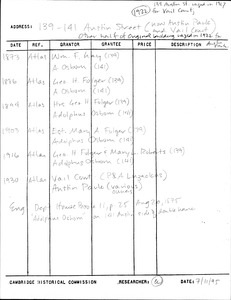 139 Austin Street razed in 1967
(1927) for Vail Court,
ADDRESS: 139-141 Austin Street (now Austin Park and Vail Court)
Other half of original building razed in 1926 for
DATE REF. GRANTOR GRANTEE PRICE DESCRIPTION
1873 Atlas Wm. F. Hury (139)
A Osborn (141)
1886 Atlas Geo H Folger (139)
A Osborn (141)
1894 Atlas Hrs Geo H Folger (139)
Adolphus Osborn (141)
1903 Atlas Est. Mary A Folger (139)
Adolphus Osborn (141)
1916 Atlas Geo H Folger & Mary (139)
Adolphus Osborn (141)
1930 Atlas Vail Court
Austin Park (various
names)
Eng Dept. House Book 11, p 25 Aug 20, 1875
"Adolphus Osborn" on 141 Austin side; double house
CAMBRIDGE HISTORICAL COMMISSION RESEARCHER: DATE: 7/11/95